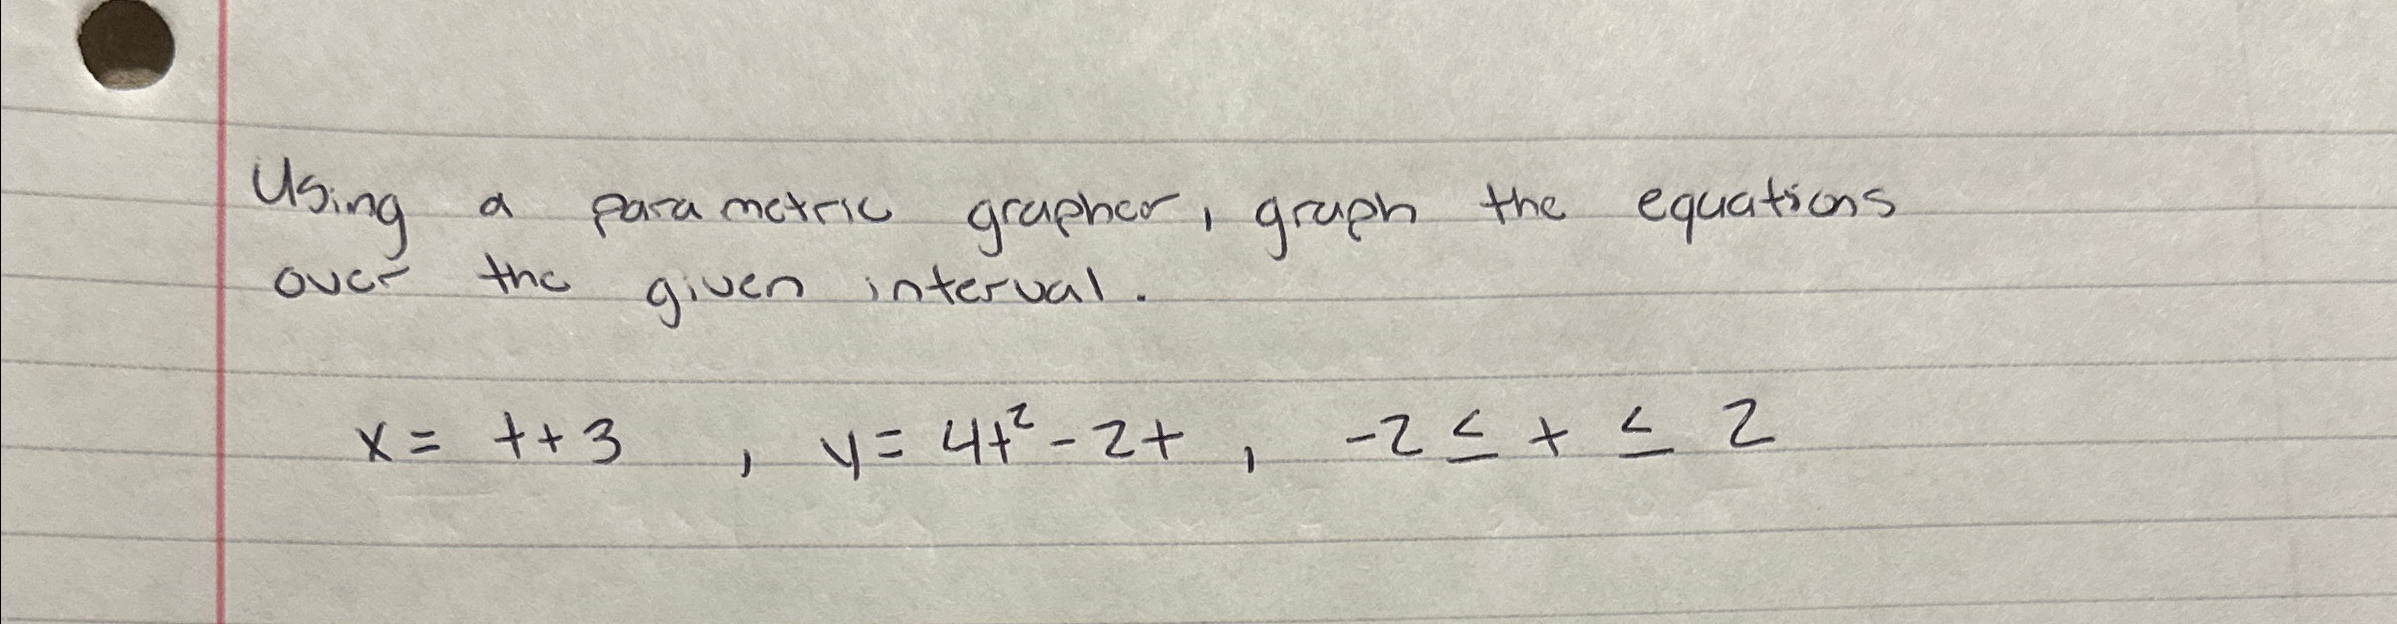 Using a parametric grapher, graph the equations
over the given interval.
x = t+3 , y = 4t² - 2t , -2 ≤ t ≤ 2